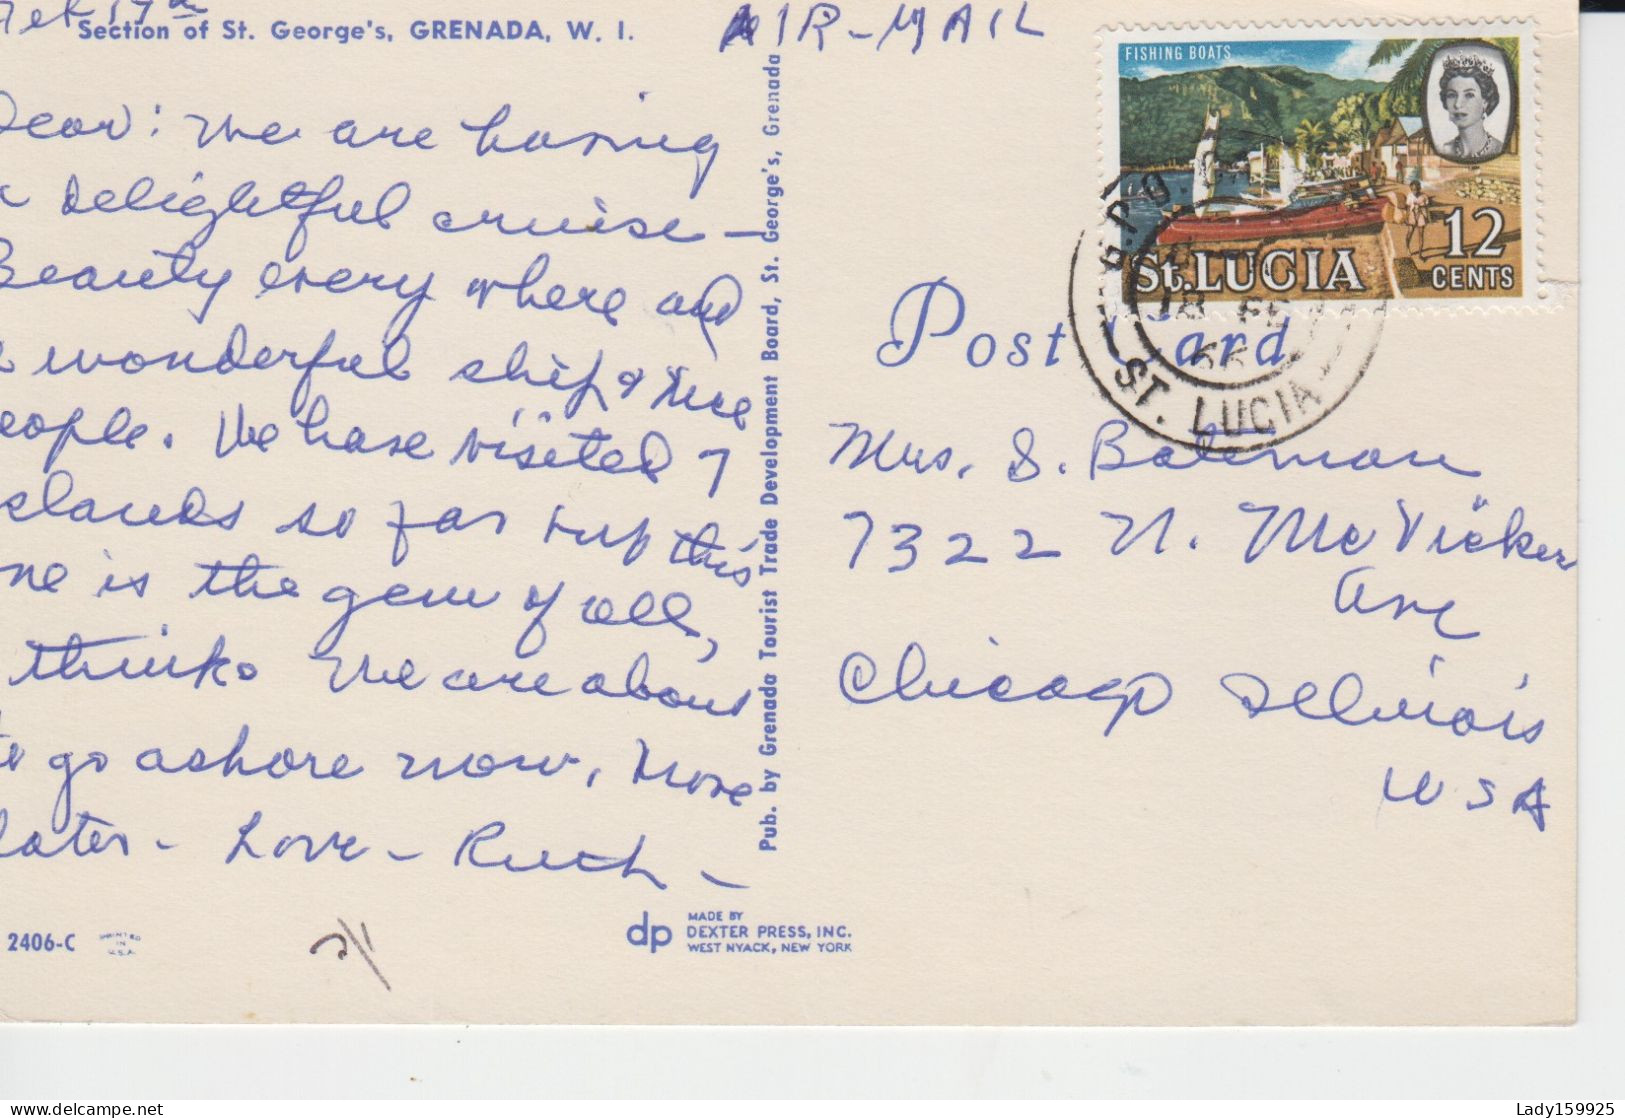 Feb 17th
Section of St. George's, GRENADA, W. I.
Dear: We are having
a delightful cruise —
Beauty every where and
a wonderful ship & nice
people. We have visited 7
islands so far but this
one is the gem of all,
I think. We are about
to go ashore now. More
later - Love - Ruth -
2406-C
PRINTED
IN
U.S.A.
Pub. by Grenada Tourist Trade Development Board, St. George's, Grenada
dp
MADE BY
DEXTER PRESS, INC.
WEST NYACK, NEW YORK
AIR-MAIL
FISHING BOATS
St. LUCIA
12
CENTS
G.P.O.
18 FE
66
ST. LUCIA
Post Card
Mrs. S. Bateman
7322 N. McVicker
Ave
Chicago Illinois
USA
Lady159925